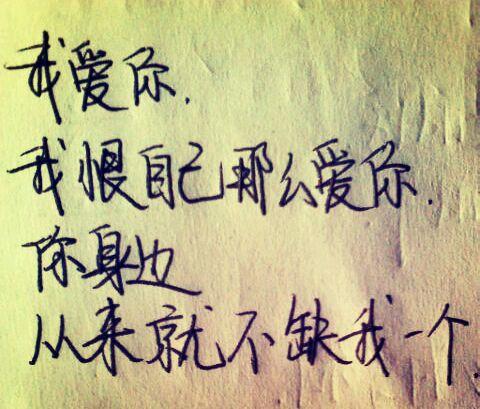 我爱你.
我恨自己那么爱你.
你身边
从来就不缺我一个.